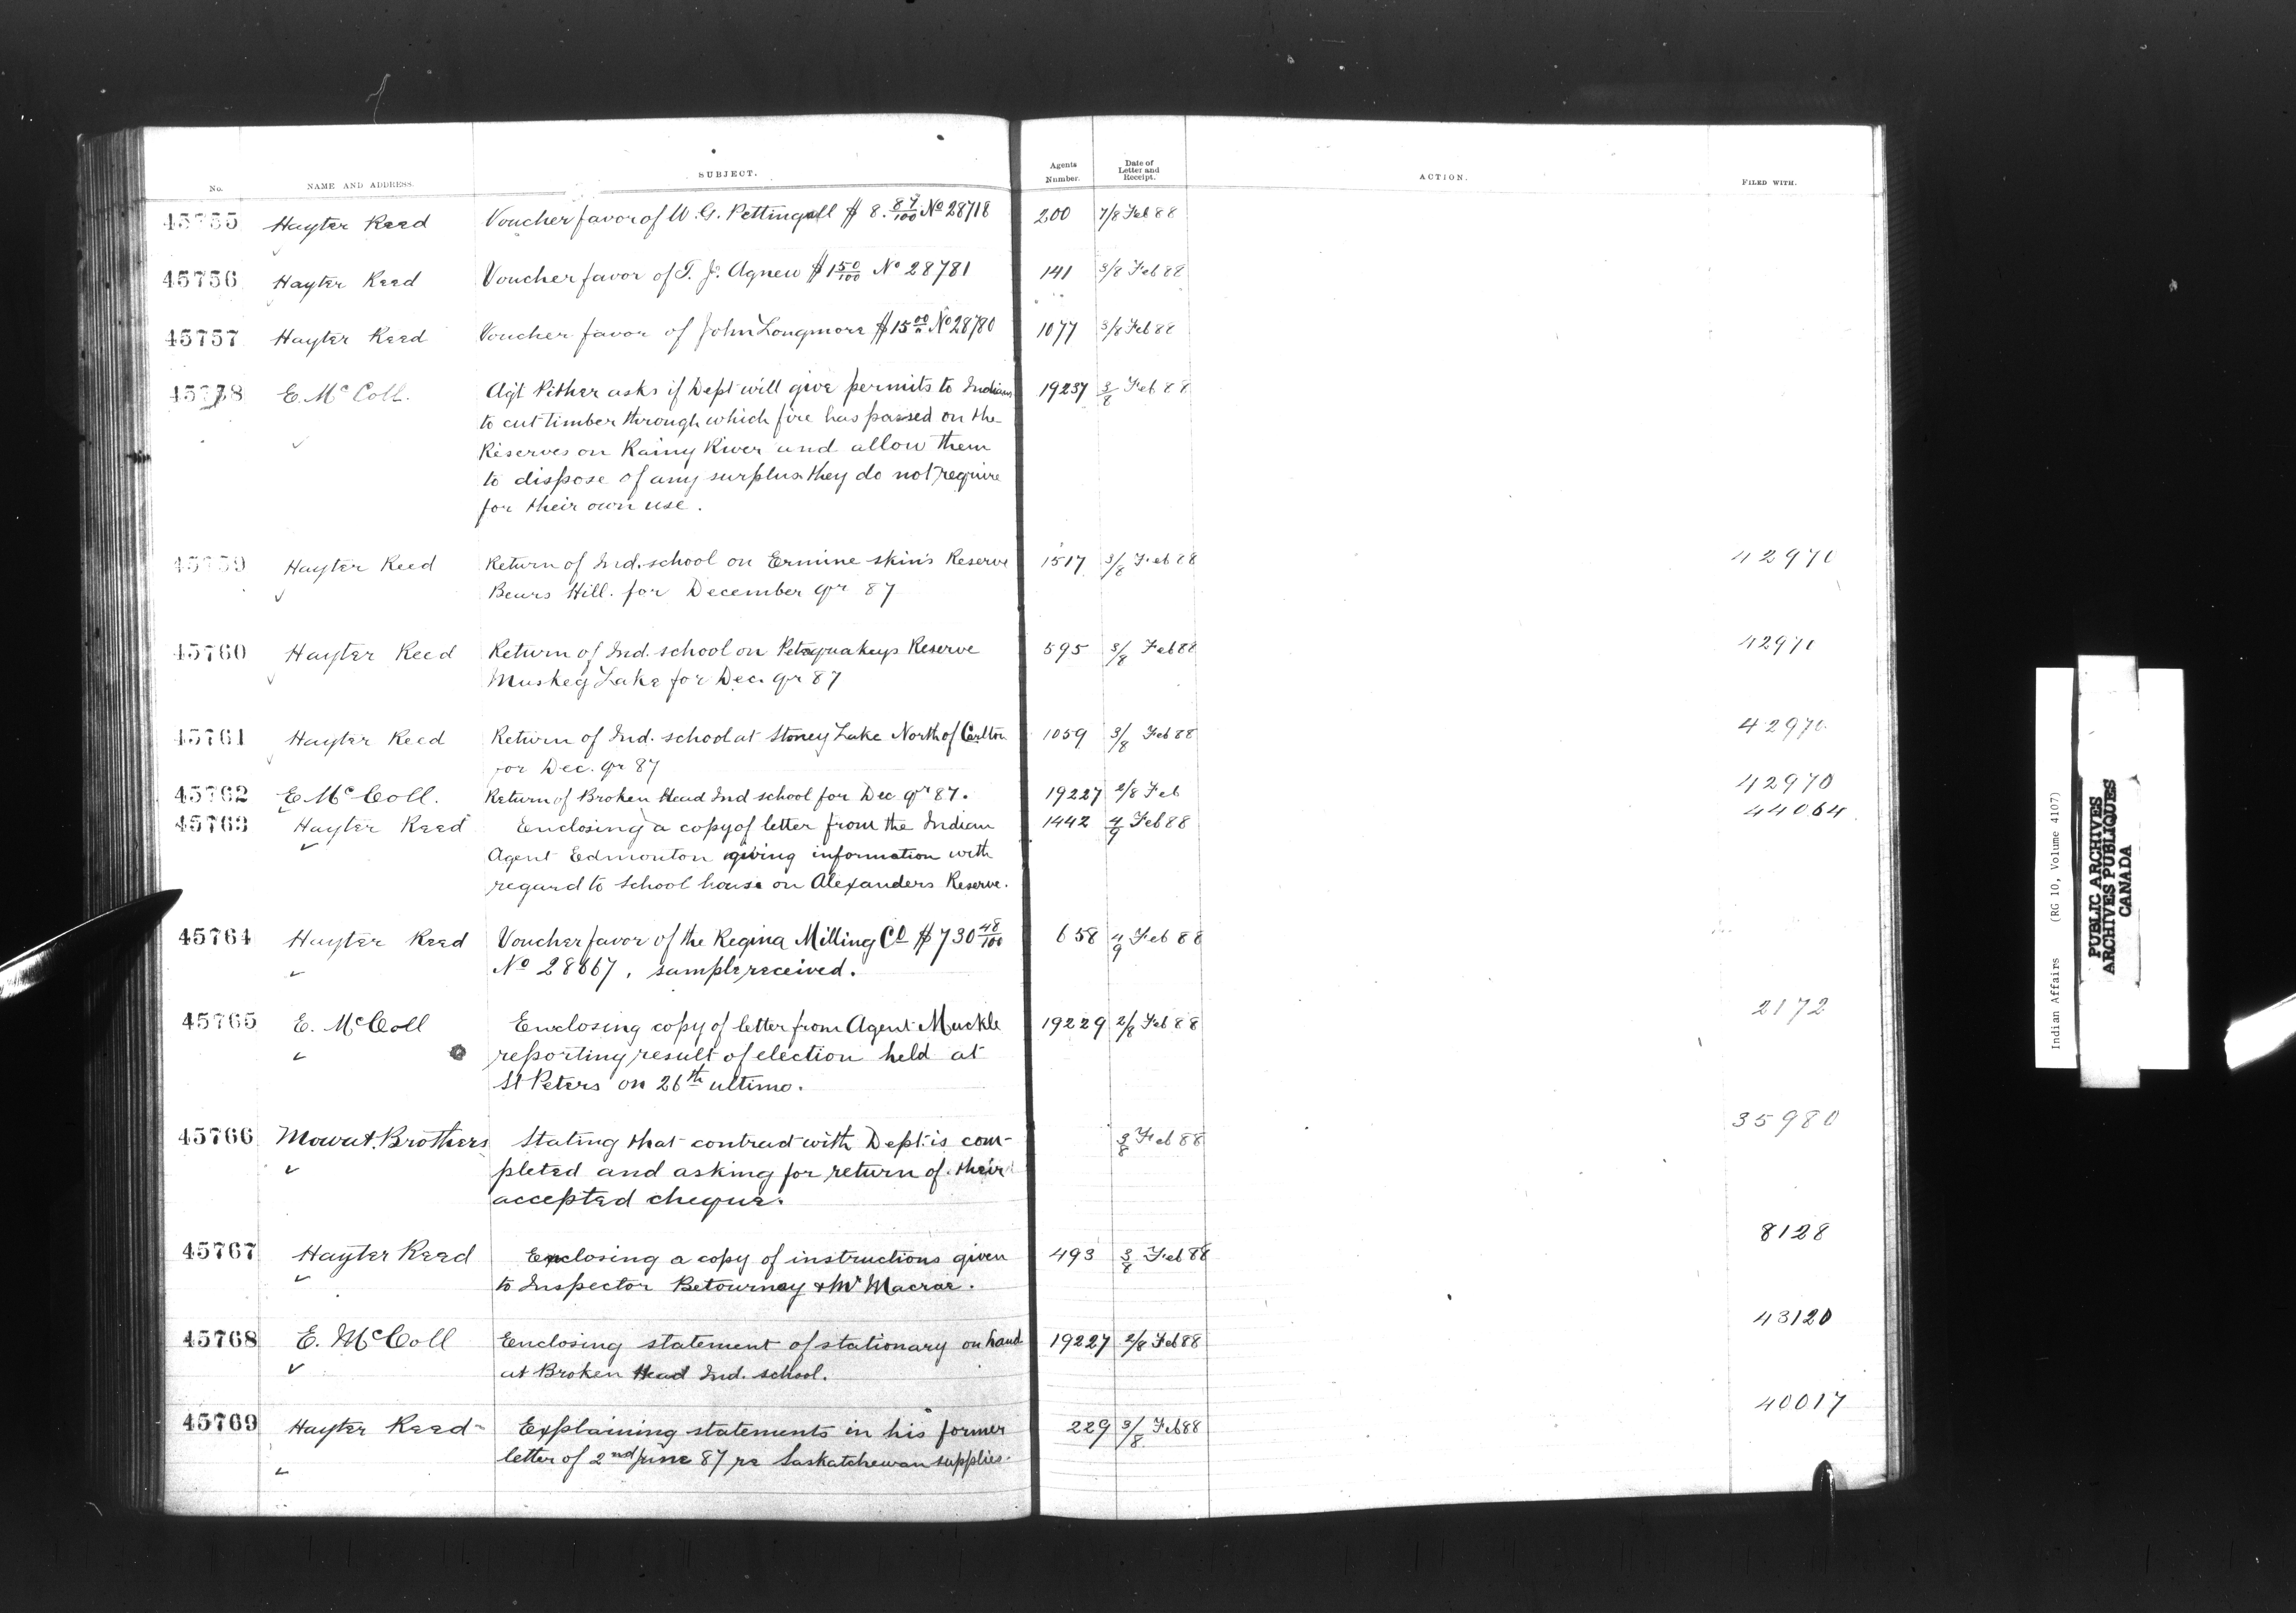 No. NAME AND ADDRESS. SUBJECT. Agents Number. Date of Letter and Receipt. ACTION. FILED WITH.
45755 Hayter Reed Voucher favor of W. G. Pettingell $ 8. 87/100 No 28718 200 7/8 Feb 88
45756 Hayter Reed Voucher favor of T. J. Agnew $1 50/100 No 28781 141 3/8 Feb 88
45757 Hayter Reed Voucher favor of John Longmore $15 00/" No 28780 1077 3/8 Feb 88
45758 E. McColl. Agt Pither asks if Dept will give permits to Indians 19237 3/8 Feb 88
to cut timber through which fire has passed on the
Reserves on Rainy River and allow them
to dispose of any surplus they do not require
for their own use.
45759 Hayter Reed Return of Ind. school on Ermine skin's Reserve 1517 3/8 Feb 88 42970
Bears Hill. for December qr 87
45760 Hayter Reed Return of Ind. school on Petaquakeys Reserve 595 3/8 Feb 88 42970
Muskeg Lake for Dec. qr 87
45761 Hayter Reed Return of Ind. school at Stoney Lake North of Carlton 1059 3/8 Feb 88 42970
for Dec. qr 87
45762 E McColl. Return of Broken Head Ind school for Dec qr 87. 19227 2/8 Feb 42970
45763 Hayter Reed Enclosing a copy of letter from the Indian 1442 4/9 Feb 88 44064
Agent Edmonton giving information with
regard to school house on Alexanders Reserve.
45764 Hayter Reed Voucher favor of the Regina Milling Co $730 48/100 658 4/9 Feb 88
No 28667, sample received.
45765 E. McColl Enclosing copy of letter from Agent Muckle 19229 2/8 Feb 88 2172
reporting result of election held at
St Peters on 26th ultimo.
45766 Mowat Brothers Stating that contract with Dept. is com- 3/8 Feb 88 35980
pleted and asking for return of their
accepted cheque.
45767 Hayter Reed Enclosing a copy of instructions given 493 3/8 Feb 88 8128
to Inspector Betournay & Mr Macrae.
45768 E. McColl Enclosing statement of stationary on hand 19227 2/8 Feb 88 43120
at Broken Head Ind. school.
45769 Hayter Reed Explaining statements in his former 229 3/8 Feb 88 40017
letter of 2nd June 87 re Saskatchewan supplies.
Indian Affairs (RG 10, Volume 4107)
PUBLIC ARCHIVES
ARCHIVES PUBLIQUES
CANADA